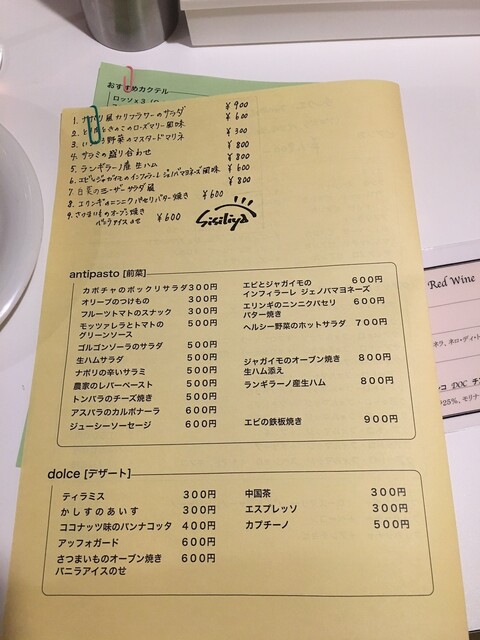 おすすめカクテル
ロッソ x 3
1. 風カリフラワーのサラダ ¥900
2. きのこのローズマリー風味 ¥600
3. 野菜のマスタードマリネ ¥300
4. サラミの盛り合わせ ¥800
5. ランギラーノ産生ハム ¥800
6. エビとジャガイモのインフィラーレ ジェノバマヨネーズ風味 ¥600
7. 白菜のシーザーサラダ風 ¥800
8. エリンギのニンニクパセリバター焼き ¥600
9. さつまいものオーブン焼き
バニラアイスのせ ¥600
Sisiliya
antipasto [前菜]
カボチャのポックリサラダ 300円
オリーブのつけもの 300円
フルーツトマトのスナック 300円
モッツァレラとトマトの 500円
グリーンソース
ゴルゴンゾーラのサラダ 500円
生ハムサラダ 500円
ナポリの辛いサラミ 500円
農家のレバーペースト 500円
トンパラのチーズ焼き 500円
アスパラのカルボナーラ 600円
ジューシーソーセージ 600円
エビとジャガイモの 600円
インフィラーレ ジェノバマヨネーズ
エリンギのニンニクパセリ 600円
バター焼き
ヘルシー野菜のホットサラダ 700円
ジャガイモのオーブン焼き 800円
生ハム添え
ランギラーノ産生ハム 800円
エビの鉄板焼き 900円
dolce [デザート]
ティラミス 300円
かしすのあいす 300円
ココナッツ味のパンナコッタ 400円
アッフォガード 600円
さつまいものオーブン焼き 600円
バニラアイスのせ
中国茶 300円
エスプレッソ 300円
カプチーノ 500円
Red Wine
ネラ、ネロ・ディ・ト
コ DOC
25%, モリナ